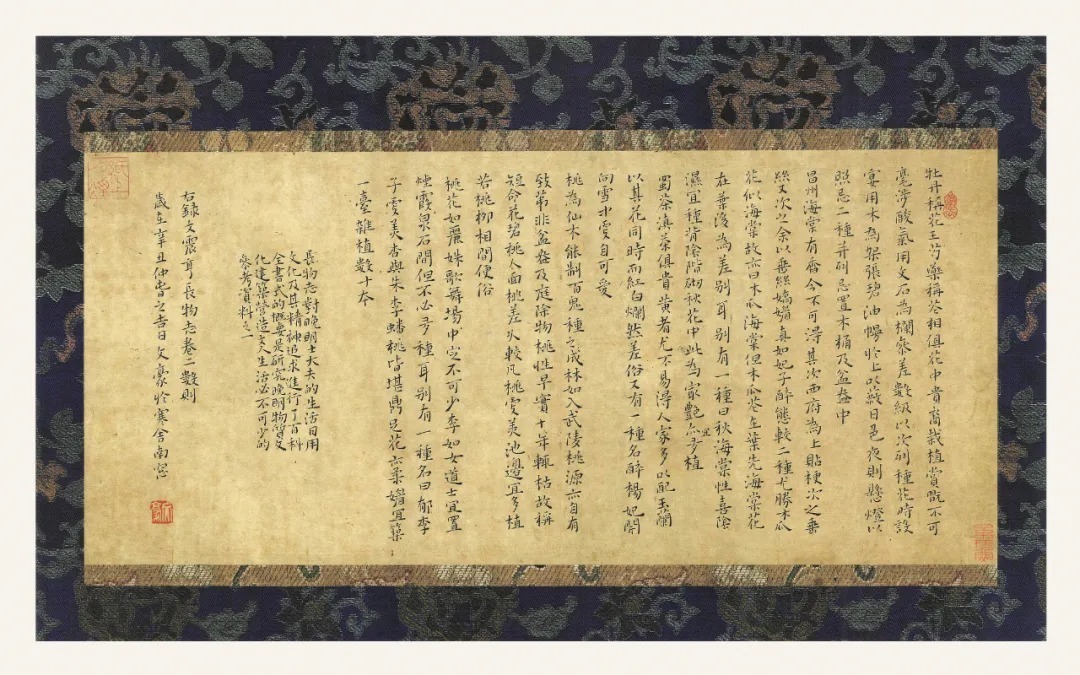 牡丹稱花王芍藥稱花相俱花中貴裔栽植賞玩不可
毫涉酸氣用文石為欄參差數級以次列種花時設
宴用木為架張碧油幔於上以蔽日色夜則懸燈以
照忌二種並列忌置木桶及盆盎中
昌州海棠有香今不可得其次西府為上貼梗次之垂
絲又次之余以垂絲嬌媚真如妃子醉態較二種尤勝木瓜
花似海棠故亦曰木瓜海棠但木瓜花在葉先海棠花
在葉後為差別耳別有一種曰秋海棠性喜陰
濕宜種背陰階砌秋花中此為最艷亦宜多植
蜀茶滇茶俱貴黃者尤不易得人家多以配玉蘭
以其花同時而紅白爛然差俗又有一種名醉楊妃開
向雪中更自可愛
桃為仙木能制百鬼種之成林如入武陵桃源亦自有
致第非盆盎及庭除物桃性早實十年輒枯故稱
短命花碧桃人面桃差久較凡桃更美池邊宜多植
若桃柳相間便俗
桃花如麗姝歌舞場中定不可少李如女道士宜置
煙霞泉石間但不必多種耳別有一種名曰郁李
子更美杏與朱李蟠桃皆堪鼎足花亦柔媚宜築
一臺雜植數十本
長物志對晚明士大夫的生活日用
文化及其精神追求進行了百科
全書式的概要是研究晚明物質文
化建築營造文人生活必不可少的
參考資料之一
右錄文震亨長物志卷二數則
歲在辛丑仲
之吉日文豪於寒舍南窗